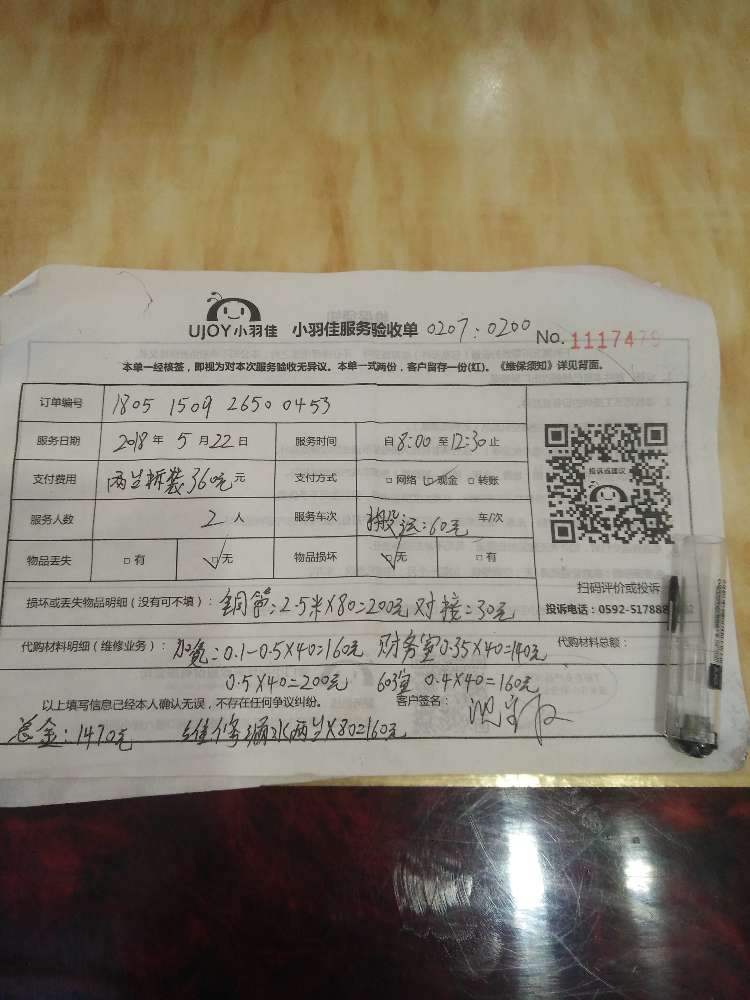 UJOY小羽佳 小羽佳服务验收单 0207:0200 No. 1117479
本单一经核签，即视为对本次服务验收无异议。本单一式两份，客户留存一份(红)。《维保须知》详见背面。
订单编号 1805 1509 2650 0453
服务日期 2018 年 5 月 22 日 服务时间 自 8:00 至 12:30 止
支付费用 两台拆装360元 元 支付方式 □网络 □现金 □转账
投诉或建议
服务人数 2 人 服务车次 搬运:60元 车/次
物品丢失 □有 □无 物品损坏 □无 □有
扫码评价或投诉
损坏或丢失物品明细（没有可不填）： 铜管:2.5米×80=200元 对接=30元
投诉电话：0592-517888
代购材料明细（维修业务）： 加氟:0.1-0.5×40=160元 财务室0.35×40=140元 代购材料总额：
0.5×40=200元 603室 0.4×40=160元
以上填写信息已经本人确认无误，不存在任何争议纠纷。 客户签名：
总金:1470元 维修漏水两台×80=160元